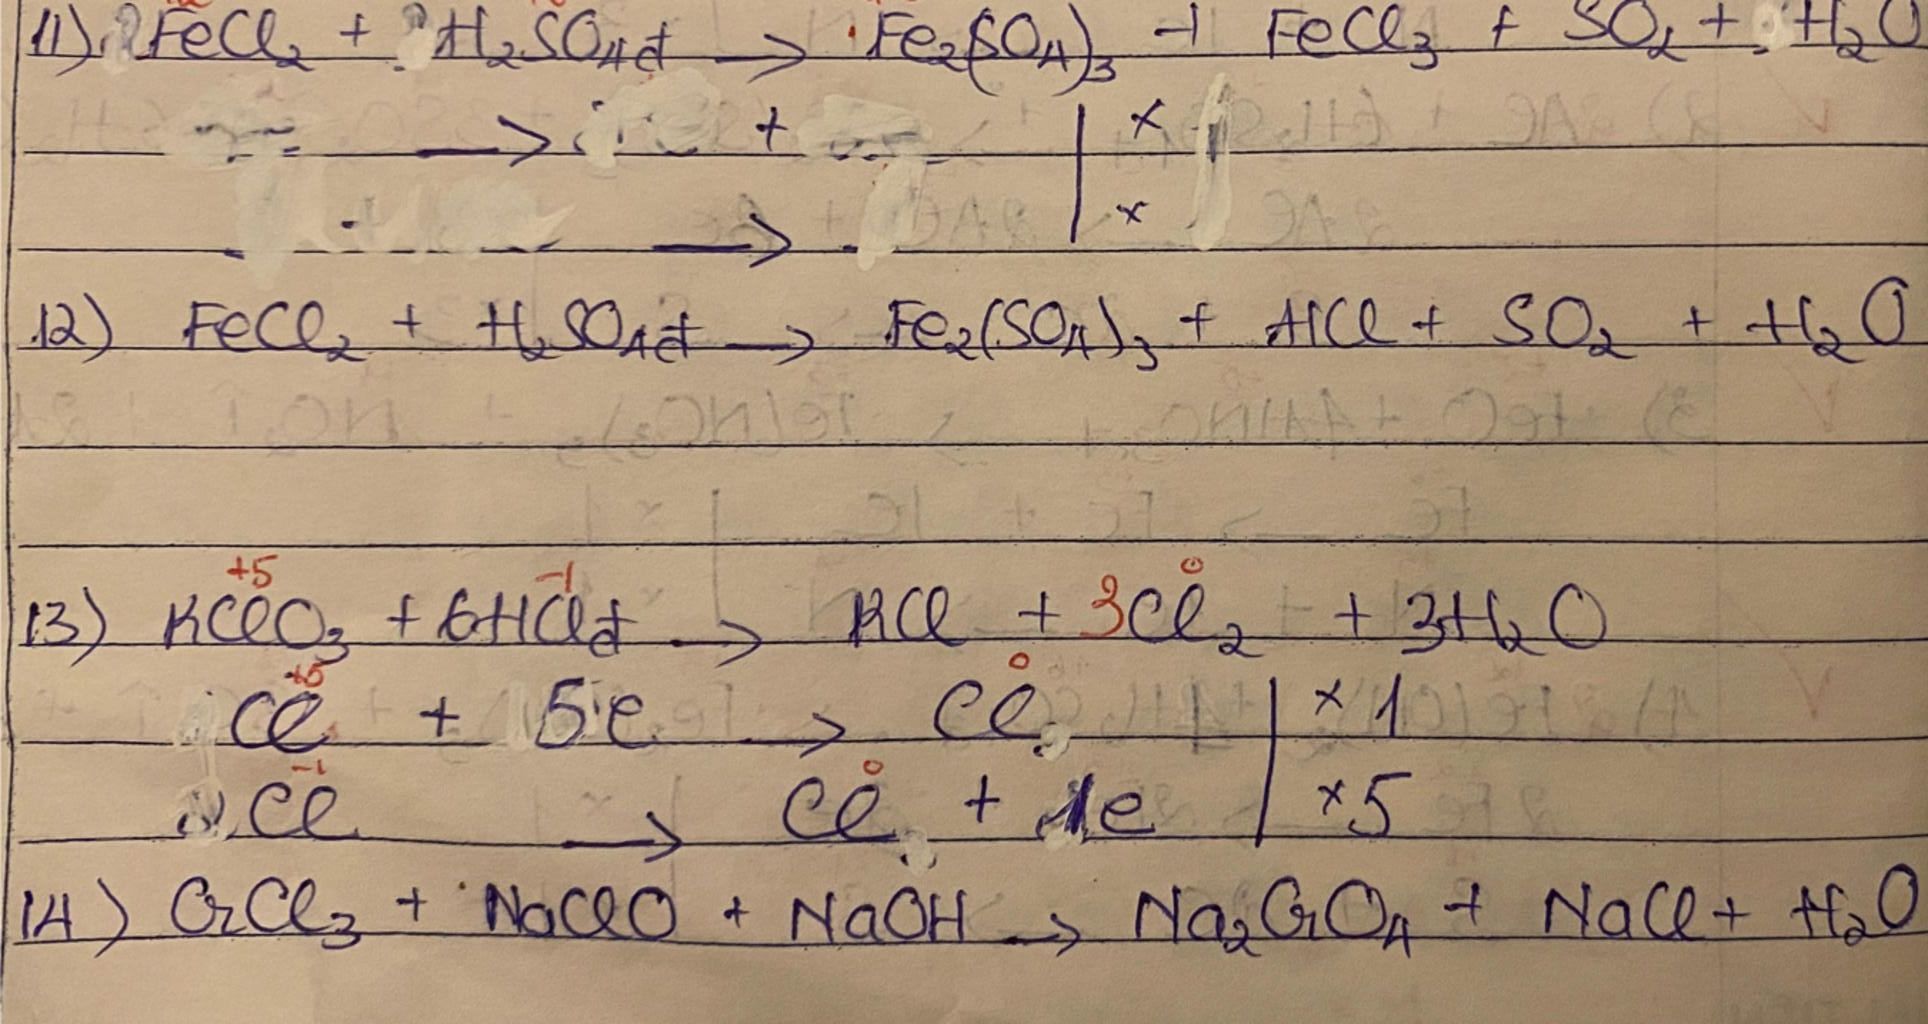 11) FeCl₂ + H₂SO₄đ → Fe₂(SO₄)₃ + FeCl₃ + SO₂ + H₂O
→ + | ×
→ | ×
12) FeCl₂ + H₂SO₄đ → Fe₂(SO₄)₃ + HCl + SO₂ + H₂O
+5 -1 0
13) KClO₃ + 6HClđ → KCl + 3Cl₂ + 3H₂O
+5 0
Cl + 5e → Cl | ×1
-1 0
Cl → Cl + 1e | ×5
14) CrCl₃ + NaClO + NaOH → Na₂CrO₄ + NaCl + H₂O